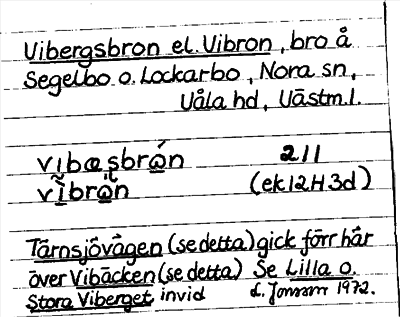 Vibergsbron el. Vibron, bro å
Segelbo o. Lockarbo, Nora sn,
Våla hd, Västm.l.
vıbæṣbrǫ́n 211
vĩbrǫ̀n (ek12H3d)
Tärnsjövägen (se detta) gick förr här
över Vibäcken (se detta) Se Lilla o.
Stora Viberget, invid d. Jonsson 1972.